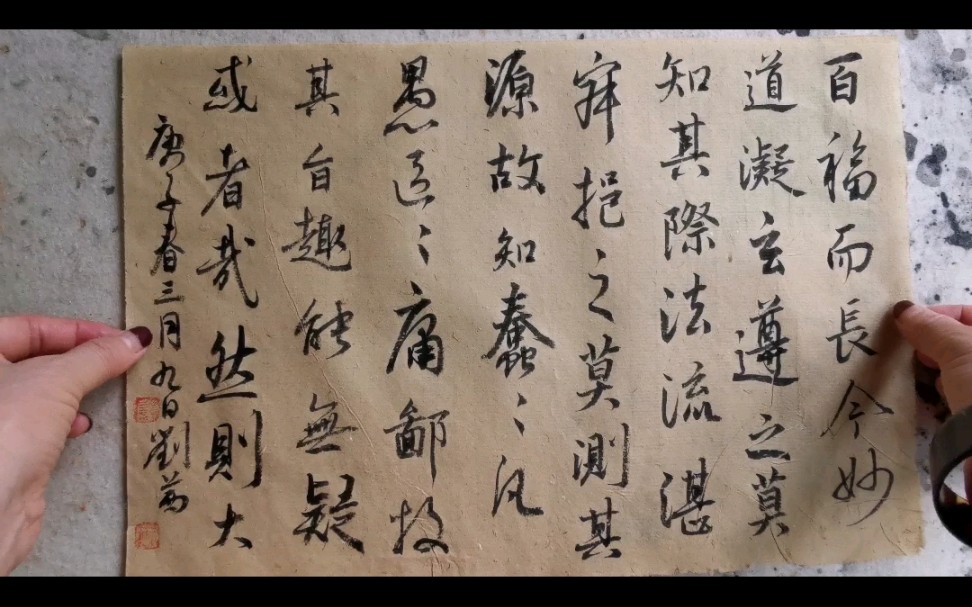 百福而長今妙
道凝玄遵之莫
知其際法流湛
寂挹之莫測其
源故知蠢〻凡
愚區〻庸鄙投
其旨趣能無疑
或者哉然則大
庚子春三月九日劉